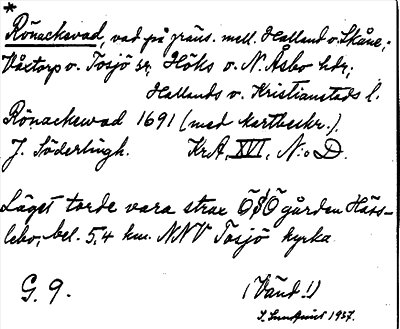 *
Rönackevad, vad på gräns. mell. Halland o. Skåne;
Våxtorp o. Tosjö sr, Höks o. N. Åsbo hdr,
Hallands o. Kristianstads l.
Rönackewad 1691 (med kartbeskr.).
J. Söderlingh. KrA, XVI, N:o D.
Läget torde vara strax ÖSÖ gården Häss-
lebo, bel. 5,4 km. NNV Tosjö kyrka.
G. 9. (Vänd!)
S. Lundquist 1937.